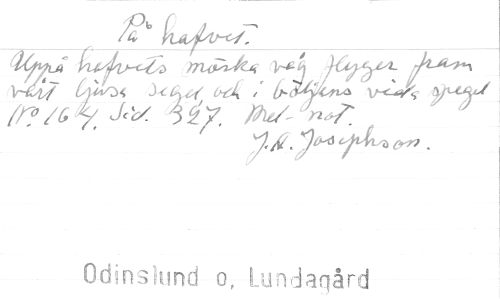 På hafvet.
Uppå hafvets mörka våg flyger fram
vårt ljusa segel, och i böljans vida spegel
No. 164. Sid. 327. Mel- not.
J.A. Josephson.
Odinslund o, Lundagård